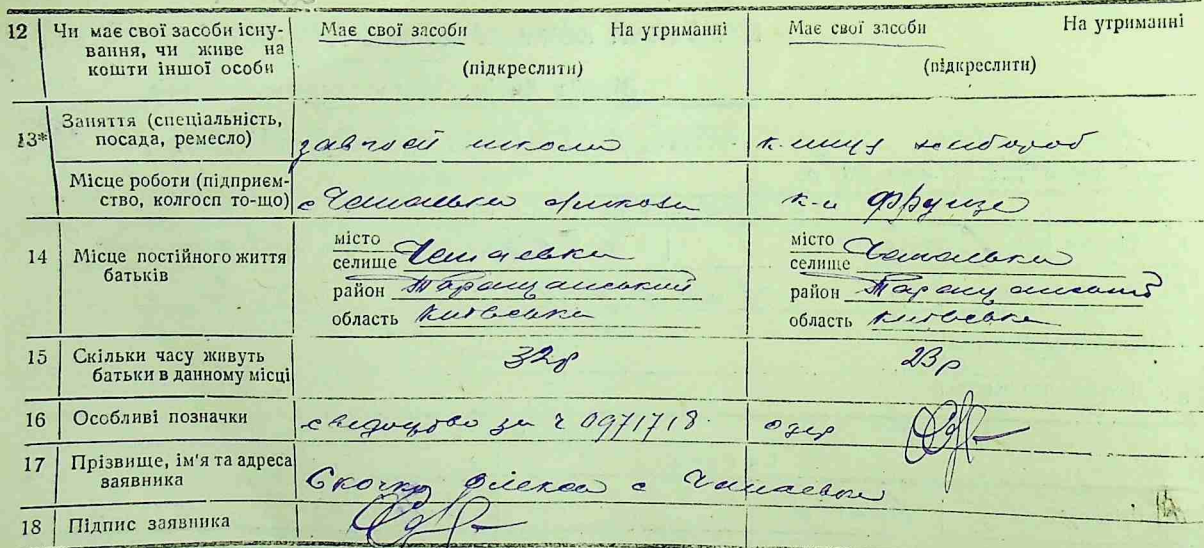 12 Чи має свої засоби існу-
вання, чи живе на
кошти іншої особи
Має свої засоби На утриманні
(підкреслити)
Має свої засоби На утриманні
(підкреслити)
13* Заняття (спеціальність,
посада, ремесло)
школи
Місце роботи (підприєм-
ство, колгосп то-що)
к-п Фрунзе
14 Місце постійного життя
батьків
місто
селище
район Таращанський
область Київська
місто
селище
район Таращанський
область Київська
15 Скільки часу живуть
батьки в данному місці
32р
23р
16 Особливі позначки
свідоцтво за ч 0971718
одер
17 Прізвище, ім'я та адреса
заявника
Скочко Олекса с
18 Підпис заявника